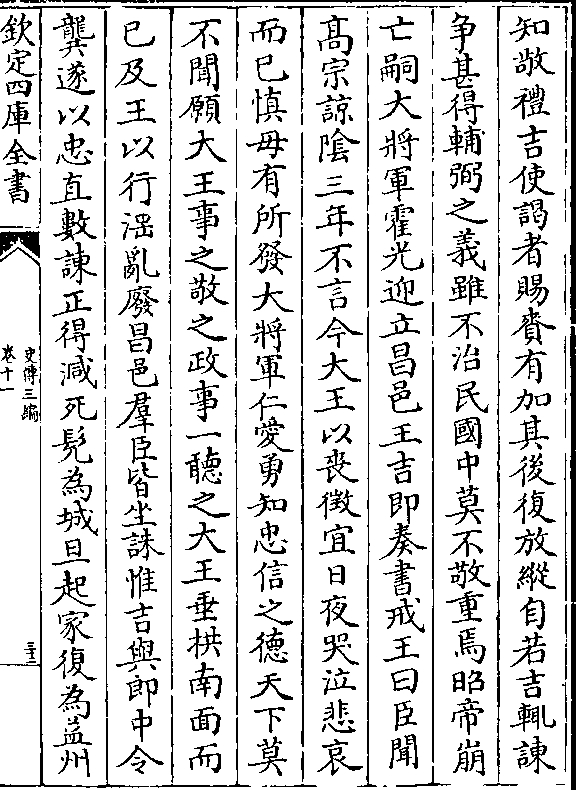 知敬禮吉使謁者賜賚有加其後復放縱自若吉輒諫
争甚得輔弼之義雖不治民國中莫不敬重焉昭帝崩
亡嗣大將軍霍光迎立昌邑王吉即奏書戒王曰臣聞
髙宗諒隂三年不言今大王以喪徴宜日夜哭泣悲哀
而已慎毋有所發大將軍仁愛勇知忠信之德天下莫
不聞願大王事之敬之政事一聽之大王垂拱南面而
已及王以行淫亂廢昌邑羣臣皆坐誅惟吉與郎中令
龔遂以忠直數諫正得減死髠為城旦起家復為益州
欽定四庫全書
史傳三編
卷十一
三十二